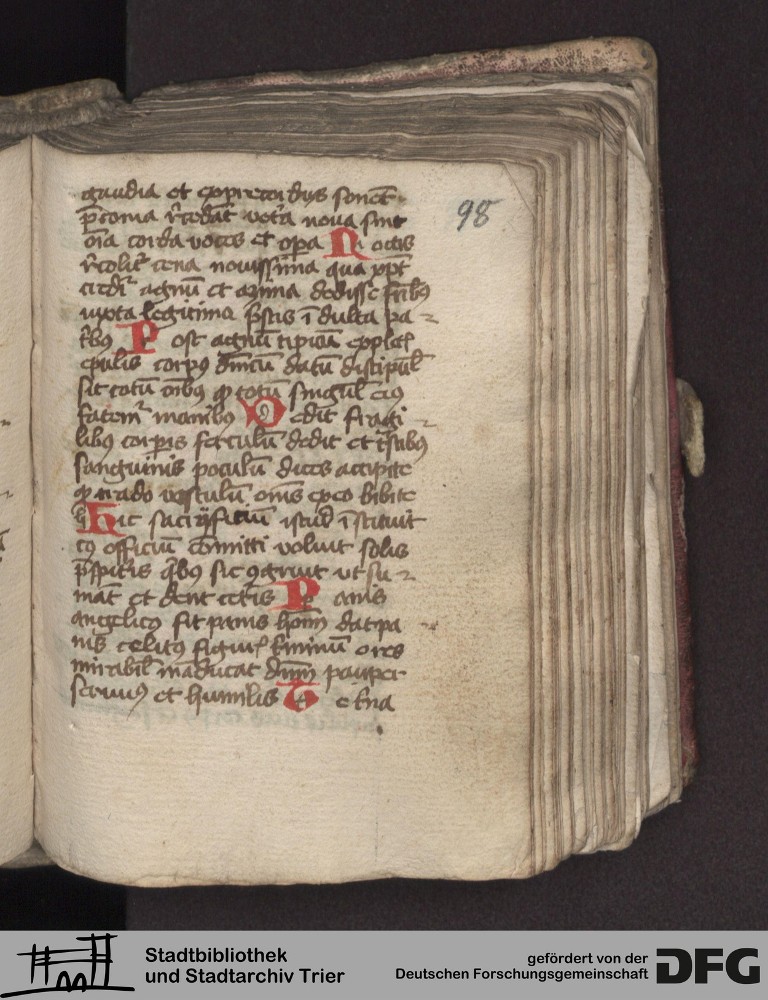 gaudia et ex precordijs sonēt
p̄conia r̄cedāt vet͛a noua sint
oīa corda voces et oꝑa Noctis
r̄colit᷑ cena nouissima qua xp̄c
credit᷑ agnū et azima dedisse fr̄ibꝰ
iuxta legitima p̄stis ī dulta pa
tr̄bꝰ Post agnū tipicū explet͛
epulis corpꝰ dn̄icū datū discipul̄
sic totū oībꝰ qꝫ totū singul̄ eiꝰ
fatem᷑ manibꝰ Dedit fragi
libꝰ corꝑis ferculū dedit et t͛stibꝰ
sanguinis poculū dices accipite
qꝫ trado vasculū om̄s ex eo bibite
Sic sacrificiū istud īstituit
cꝰ officiū cōmitti voluit solis
p̄spit͛is qͥbꝰ sic ꝯgruit ut su
māt et dent cet͛is Panis
angelicꝰ fit panis hoīm dat pa
nis celicꝰ figur͛ t͛minū o res
mirabil̄ māducat dn̄m pauper
seruus et humilis Te t͛na
98
Stadtbibliothek
und Stadtarchiv Trier
gefördert von der
Deutschen Forschungsgemeinschaft
DFG